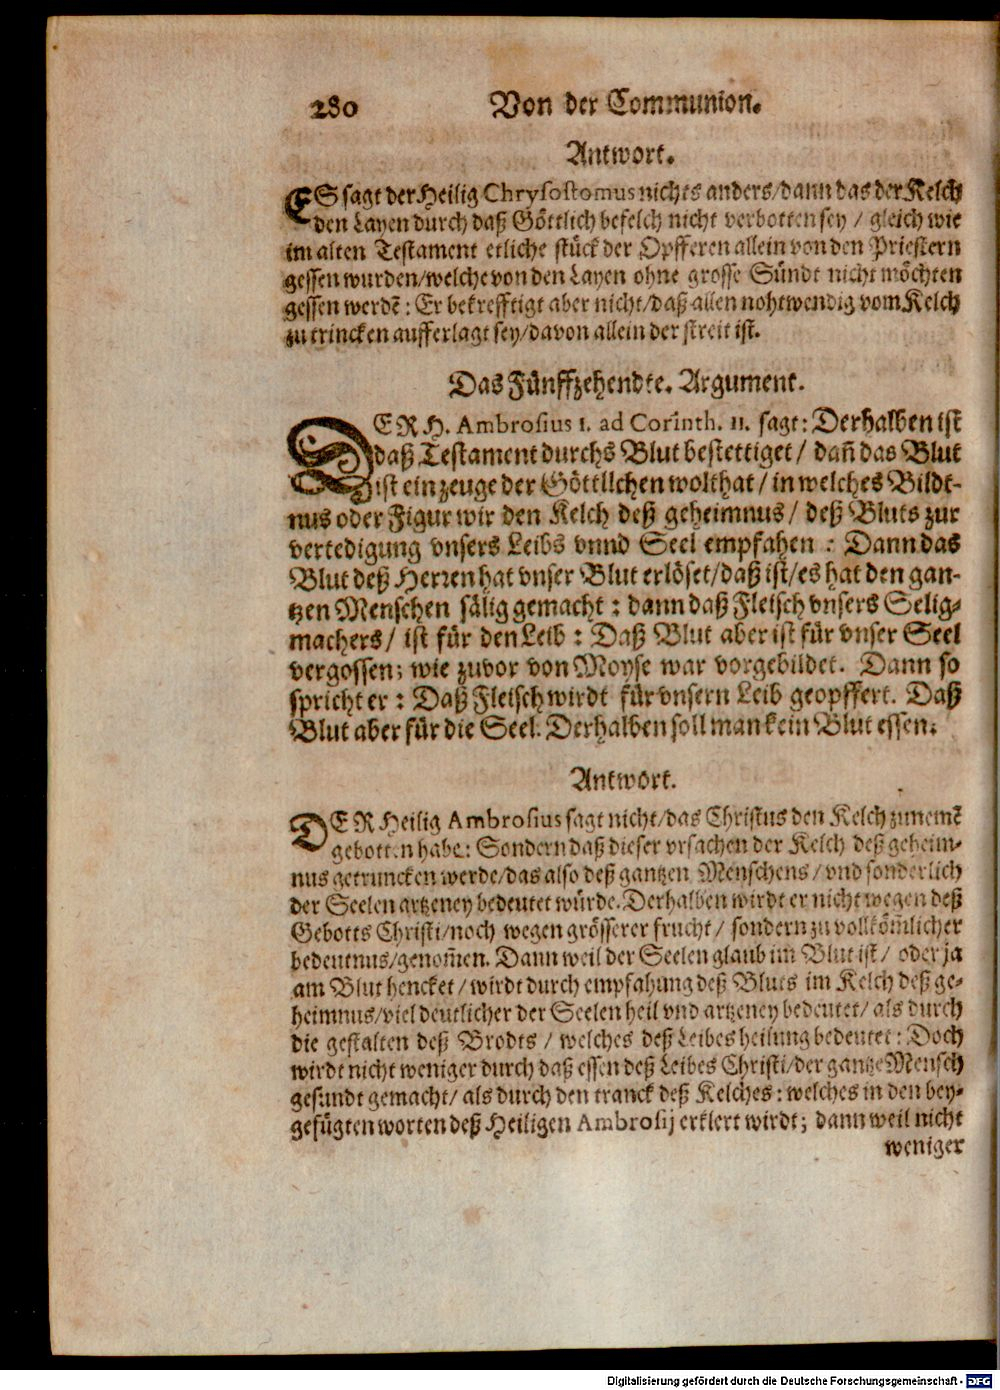 280 Von der Communion.
Antwort.
ES sagt der Heilig Chrysostomus nichts anders/dann das der Kelch
den Layen durch daß Göttlich befelch nicht verbotten sey / gleich wie
im alten Testament etliche stück der Opfferen allein von den Priestern
gessen wurden/welche von den Layen ohne grosse Sündt nicht möchten
gessen werdē: Er bekrefftigt aber nicht/daß allen nohtwendig vom Kelch
zu trincken aufferlagt sey/davon allein der streit ist.
Das Fünffzehendte. Argument.
DER H. Ambrosius 1. ad Corinth. 11. sagt: Derhalben ist
daß Testament durchs Blut bestettiget/ dañ das Blut
ist ein zeuge der Göttlichen wolthat/in welches Bildt-
nus oder Figur wir den Kelch deß geheimnus/ deß Bluts zur
vertedigung vnsers Leibs vnnd Seel empfahen : Dann das
Blut deß Herren hat vnser Blut erlöset/daß ist/es hat den gan-
tzen Menschen sälig gemacht : dann daß Fleisch vnsers Selig-
machers/ ist für den Leib : Daß Blut aber ist für vnser Seel
vergossen; wie zuvor von Moyse war vorgebildet. Dann so
spricht er : Daß Fleisch wirdt für vnsern Leib geopffert. Daß
Blut aber für die Seel. Derhalben soll man kein Blut essen.
Antwort.
DER Heilig Ambrosius sagt nicht/das Christus den Kelch zunemē
gebotten habe: Sondern daß dieser vrsachen der Kelch deß geheim-
nus getruncken werde/das also deß gantzen Menschens/vnd sonderlich
der Seelen artzeney bedeutet würde. Derhalben wirdt er nicht wegen deß
Gebotts Christi/noch wegen grösserer frucht/ sondern zu vollköm̃licher
bedeutnus/genom̃en. Dann weil der Seelen glaub im Blut ist/ oder ja
am Blut hencket/wirdt durch empfahung deß Bluts im Kelch deß ge-
heimnus/viel deutlicher der Seelen heil vnd artzeney bedeutet/als durch
die gestalten deß Brodts / welches deß Leibes heilung bedeutet: Doch
wirdt nicht weniger durch daß essen deß Leibes Christi/der gantze Mensch
gesundt gemacht/als durch den tranck deß Kelches: welches in den bey-
gefügten worten deß Heiligen Ambrosij erklert wirdt; dann weil nicht
weniger
Digitalisierung gefördert durch die Deutsche Forschungsgemeinschaft - DFG